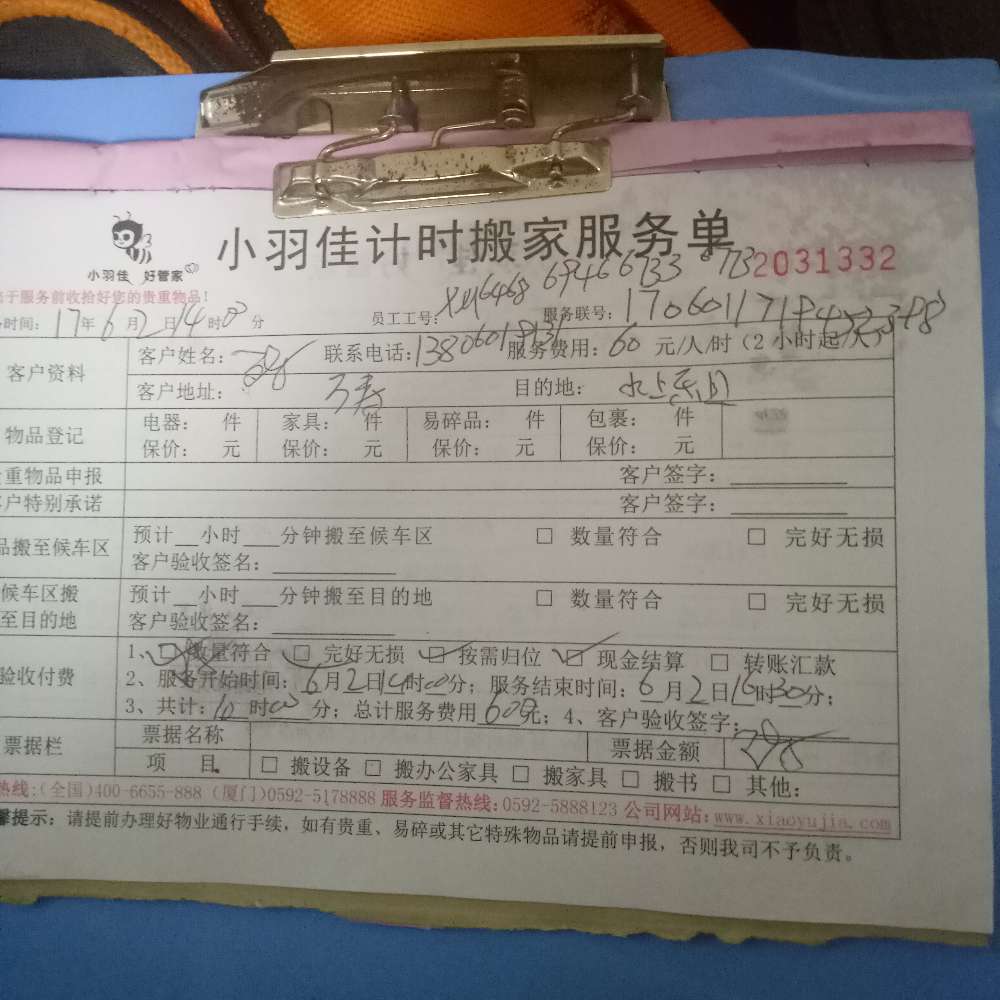 小羽佳计时搬家服务单
小羽佳 好管家
2031332
于服务前收拾好您的贵重物品!
时间: 17年6月2日14时00分 员工工号: 6468 69466733 8773 服务联号:
客户资料 客户姓名: 联系电话: 服务费用: 60 元/人/时 (2小时起/人)
客户地址: 万寿 目的地: 水上乐园
物品登记 电器: 件 家具: 件 易碎品: 件 包裹: 件
保价: 元 保价: 元 保价: 元 保价: 元
重物品申报 客户签字:
户特别承诺 客户签字:
品搬至候车区 预计__小时___分钟搬至候车区 □ 数量符合 □ 完好无损
客户验收签名:
候车区搬至目的地 预计__小时___分钟搬至目的地 □ 数量符合 □ 完好无损
客户验收签名:
验收付费 1、□ 数量符合 □ 完好无损 □ 按需归位 □ 现金结算 □ 转账汇款
2、服务开始时间: 6月2日14时00分; 服务结束时间: 6月2日16时30分;
3、共计: 10时00分; 总计服务费用600元; 4、客户验收签字:
票据栏 票据名称 票据金额
项 目 □ 搬设备 □ 搬办公家具 □ 搬家具 □ 搬书 □ 其他:
热线:(全国)400-6655-888 (厦门)0592-5178888 服务监督热线:0592-5888123 公司网站:www.xiaoyujia.com
馨提示: 请提前办理好物业通行手续, 如有贵重、易碎或其它特殊物品请提前申报, 否则我司不予负责。